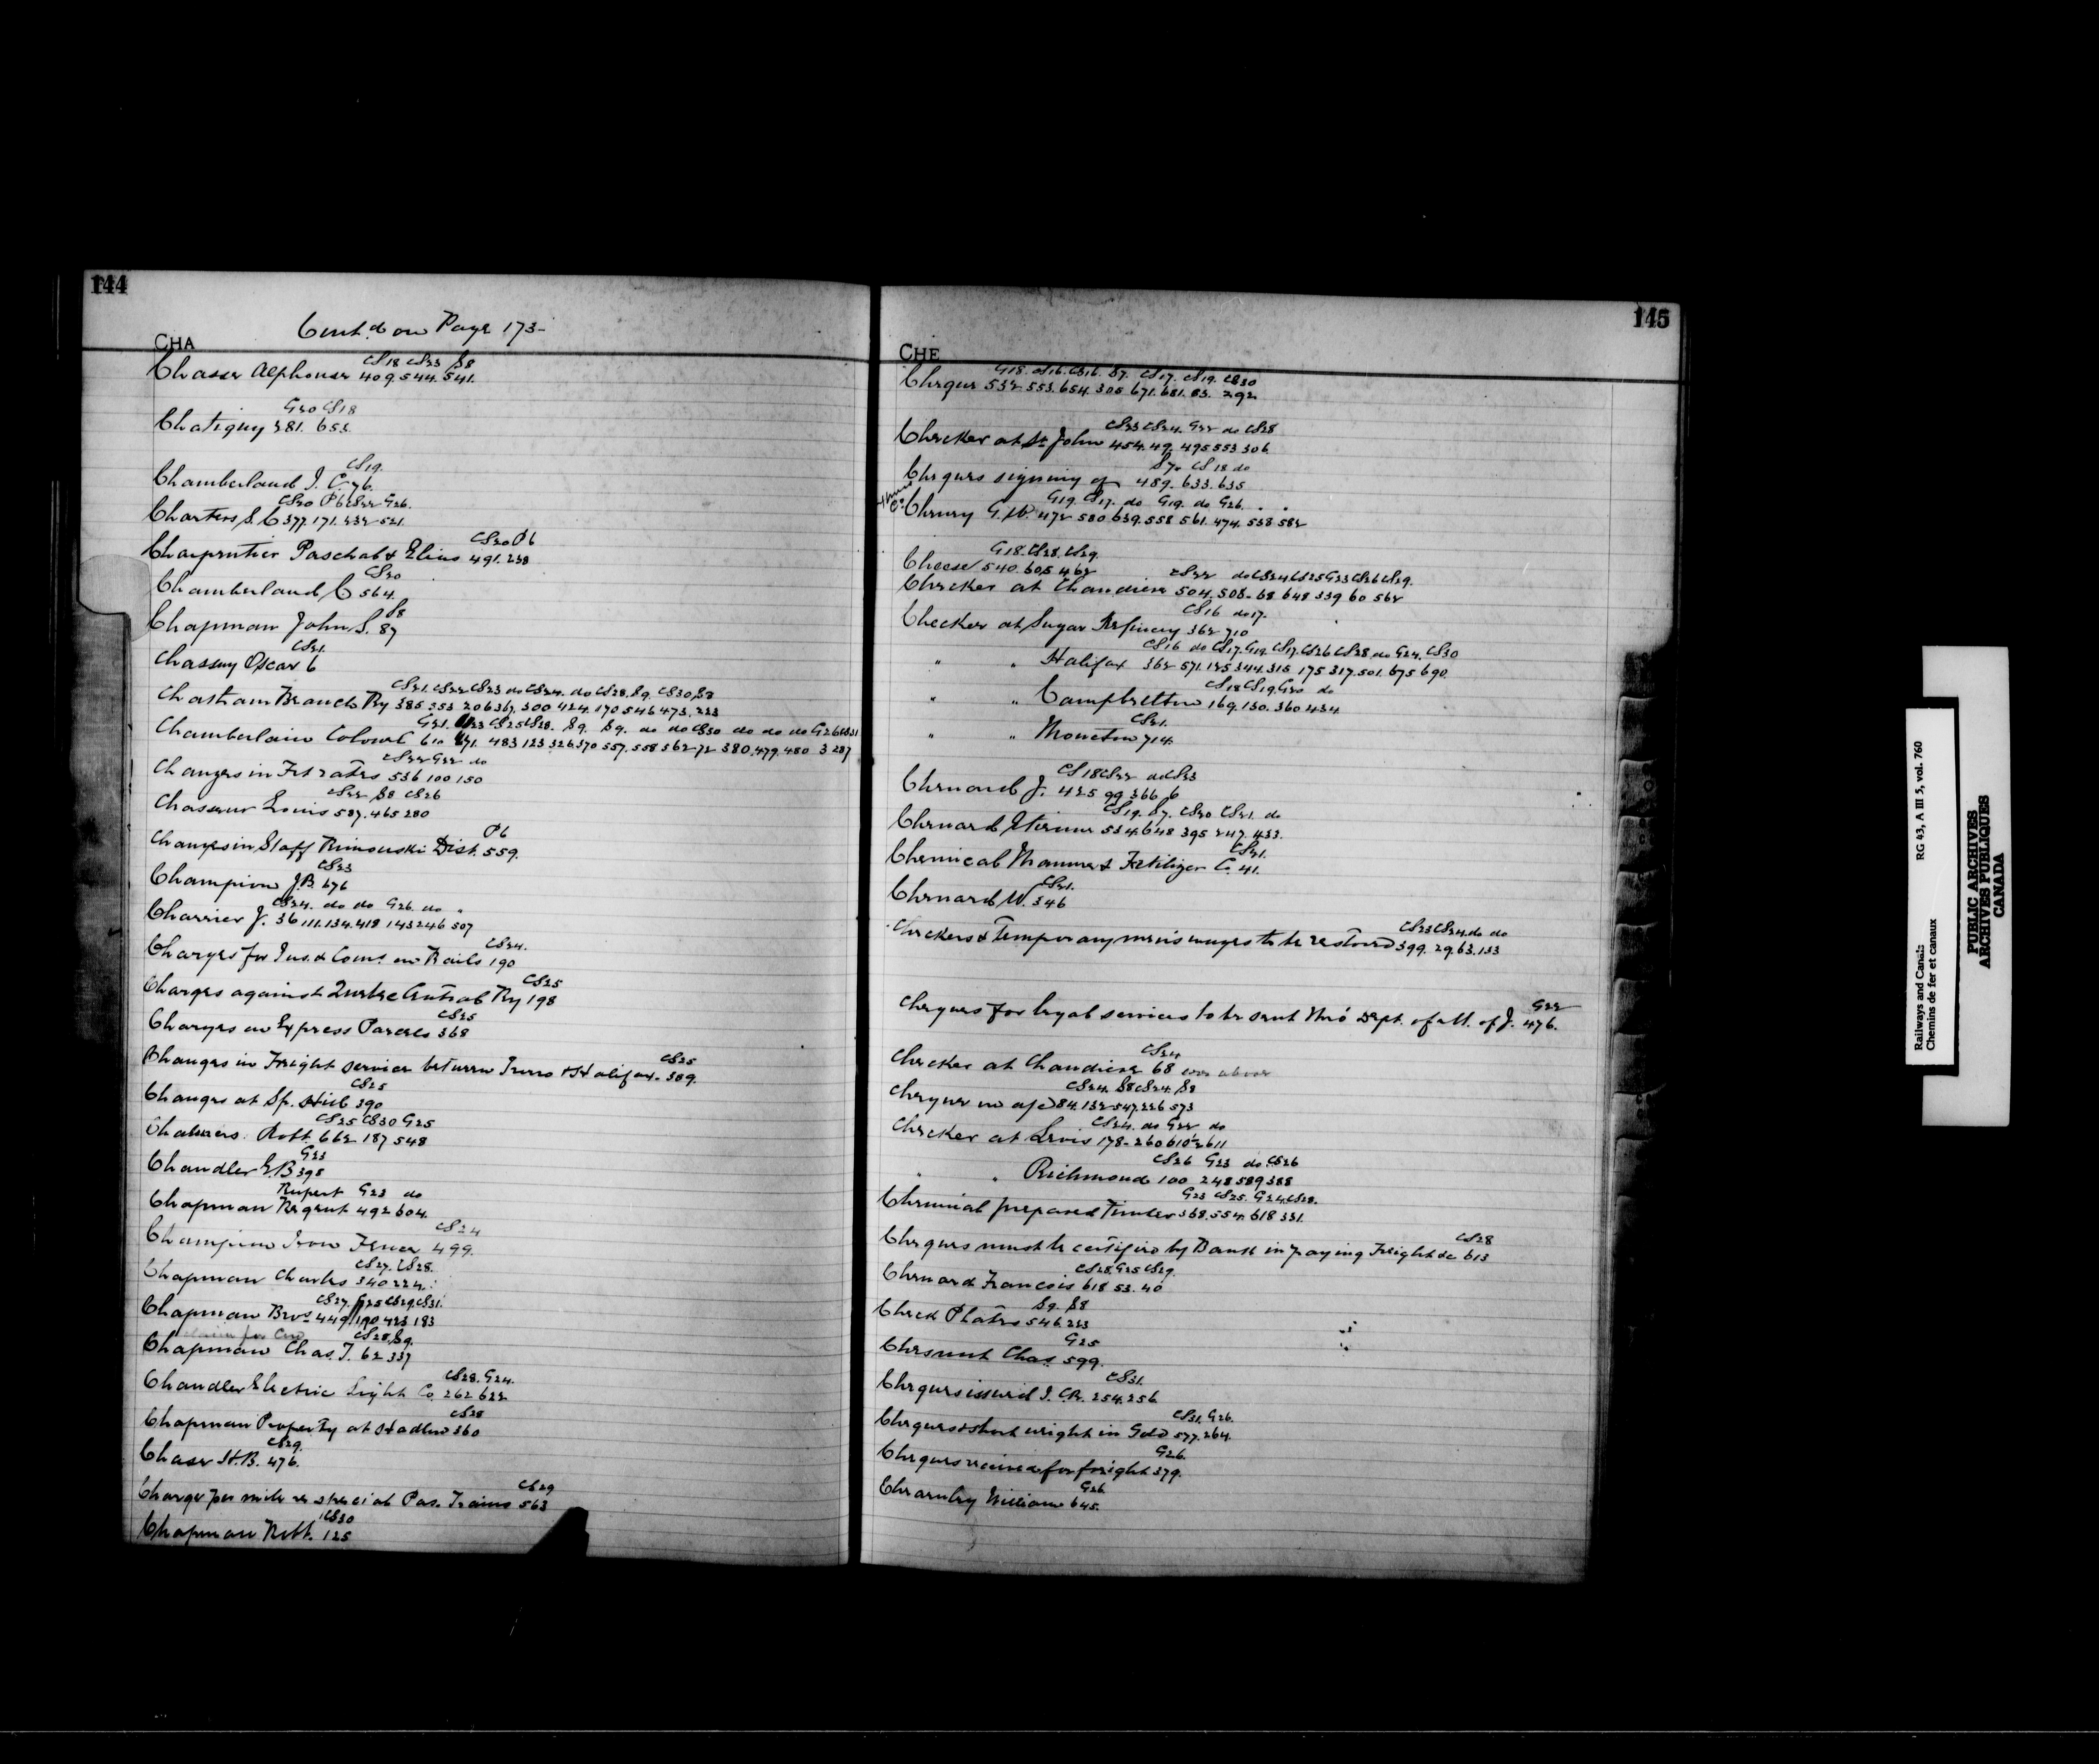 144
Cont.d on Page 173-
CHA
CS18 CS23 S8
Chasse Alphonse 409. 544. 541.
G20 CS18
Chatigny 281. 653.
CS19.
Chamberland J. C. 76.
CS20 P6 CS22 G26.
Charters S. C 377. 171. 232 521.
CS20 P6
Charpentier Paschal & Elius 491. 238
CS20
Chamberland C 564.
S8
Chapman John S. 87
CS21.
Chassey Oscar 6
CS21. CS22 CS23 do CS24. do CS28. S9. CS30 S8
Chatham Branch Ry 385. 353 206 367. 300 424. 170 546 473. 223
Chamberlain Colonel 610 671. 483 123 326 370 557. 558 562 72 380. 479. 480 3 287
CS22 G22 do
Changes in Frt rates 536 100 150
CS22 S8 CS26
Chasseur Louis 587. 465 280
P6
Changes in Staff Rimouski Dist. 559.
CS23
Champion J.B. 676
CS24. do do G26. do "
Charrier J. 36 111. 134. 419 143 246 507
CS24.
Charges for Ins. & Coms. on Rails 190
CS25
Charges against Quebec Central Ry 198
CS25
Charges on Express Parcels 368
CS25
Changes in Freight service between Truro & Halifax. 389.
CS25
Changes at Sp. Hill 390
CS25 CS30 G25
Chalmers. Robt. 662 187 548
G23
Chandler E.B 398
Rupert G23 do
Chapman Regent 492 604.
CS24
Champion Iron Fence 499.
CS27. CS28.
Chapman Charles 340 224.
CS27. G25 CS29 CS31.
Chapman Bros 449 190 423 183
claim for Cow CS28. S9.
Chapman Chas. T. 62 337
CS28. G24.
Chandler Electric Light Co. 262 622
CS28
Chapman Property at Hadlow 360
CS29.
Chase H.B. 476.
CS29
Charge per mile re special Pas. Trains 563
CS30
Chapman Robt. 125
145
CHE
G18. CS16. CS16. S7. CS17. CS19. CS30
Cheques 532 553. 654. 305 671. 681. 83. 292
CS23 CS24. G22 do CS28
Checker at St John 454. 49. 495 553 306
S7. CS18 do
Cheques signing of 489. 633. 635
G19. CS17. do G19. do G26. " "
Cheney G. W. 472 580 639. 558 561. 474. 538 582
G18. CS28. CS29.
Cheese 540. 605 462
CS22 do CS24 CS25 G23 CS26 CS29.
Checker at Chaudiere 504. 508. 68 648 339 60 562
CS16 do 17.
Checker at Sugar Refinery 362 710
CS16 do CS17. G19. CS17. CS26 CS28 do G24. CS30
" " Halifax 362 571. 125 344. 315 175 317. 501. 675 690.
CS18 CS19. G20 do
" " Campbellton 169. 130. 360 434.
CS21.
" " Moncton 714.
CS18 CS22 do CS23
Chenard J. 425 99 366 6
CS19. S7. CS20 CS21. do
Chenard Etienne 534. 648 395 247. 433.
CS21.
Chemical Manure & Fertilizer Co. 41.
CS21.
Chenard W. 346
CS23 CS24. do do
Checkers & Temporary men's wages to be restored 399. 29. 63. 133
G22
Cheques for legal services to be sent thro' Dept. of M. of J. 476.
CS24
Checker at Chaudiere 68 see above
CS24. S8 CS24. S8
84. 132 547. 226 573
CS24. do G22 do
Checker at Levis 178 - 260 610 2 611
CS26 G23 do CS26
" Richmond 100 248 589 388
G23 CS25. G24. CS28.
Chemical prepared Timber 368. 554. 618 331.
CS28
Cheques must be certified by Bank in paying Freight &c 613
CS28. G25 CS29.
Chenard Francois 618 53. 40
S9. S8
Check Plates 546. 223
G25
Chesnut Chas. 599.
CS31.
Cheques issued I. C.R. 254. 256
CS31. G26.
Cheques & short weight in Gold 577. 264.
G26.
Cheques received for freight 379.
G26.
Chearnley William 645.
Railways and Canals RG 43, A III 5, vol. 760
Chemins de fer et canaux
PUBLIC ARCHIVES
ARCHIVES PUBLIQUES
CANADA